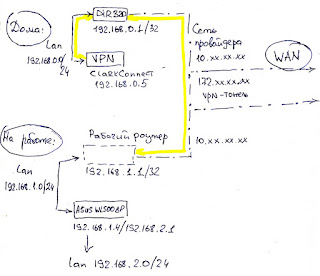 Дома:
DIR320
192.168.0.1/32
Lan
192.168.0.0/
24
VPN
ClarkConnect
192.168.0.5
Сеть
провайдера
10.xx.xx.xx
WAN
172.xx.xx.xx
VPN-тоннель
На работе:
Рабочий роутер
10.xx.xx.xx
192.168.1.1/32
Lan
192.168.1.0/24
ASUS WL500gP
192.168.1.4/192.168.2.1
lan 192.168.2.0/24